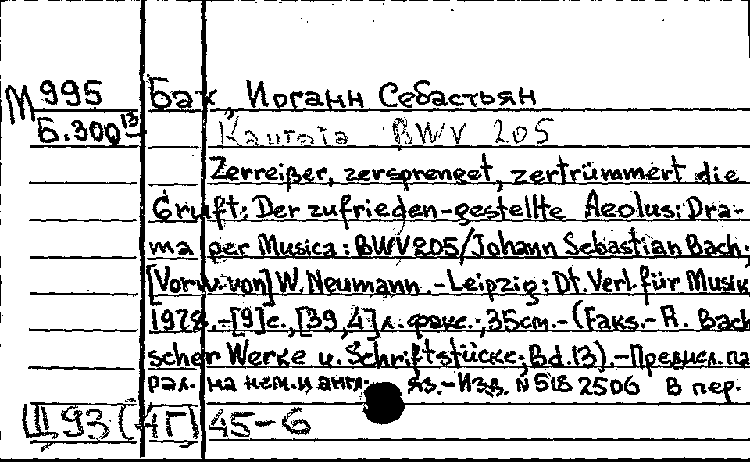 М 995 Бах, Иоганн Себастьян
Б.300 13 Кантата BWV 205
Zerreißer, zersprenget, zertrümmert die
Gruft: Der zufrieden-gestellte Aeolus: Dra-
ma per Musica: BWV 205/Johann Sebastian Bach;
[Vorw. von] W. Neumann. - Leipzig: Dt. Verl. für Musik
1978. - [9] с., [39,4] л. факс.; 35 см. - (Faks. - R. Bach
scher Werke u. Schriftstücke; Bd. 13). - Предисл. па
рал. на нем. и англ. яз. - Изв. N 518 2506 В пер.
Щ 93 (4Г) 45-6